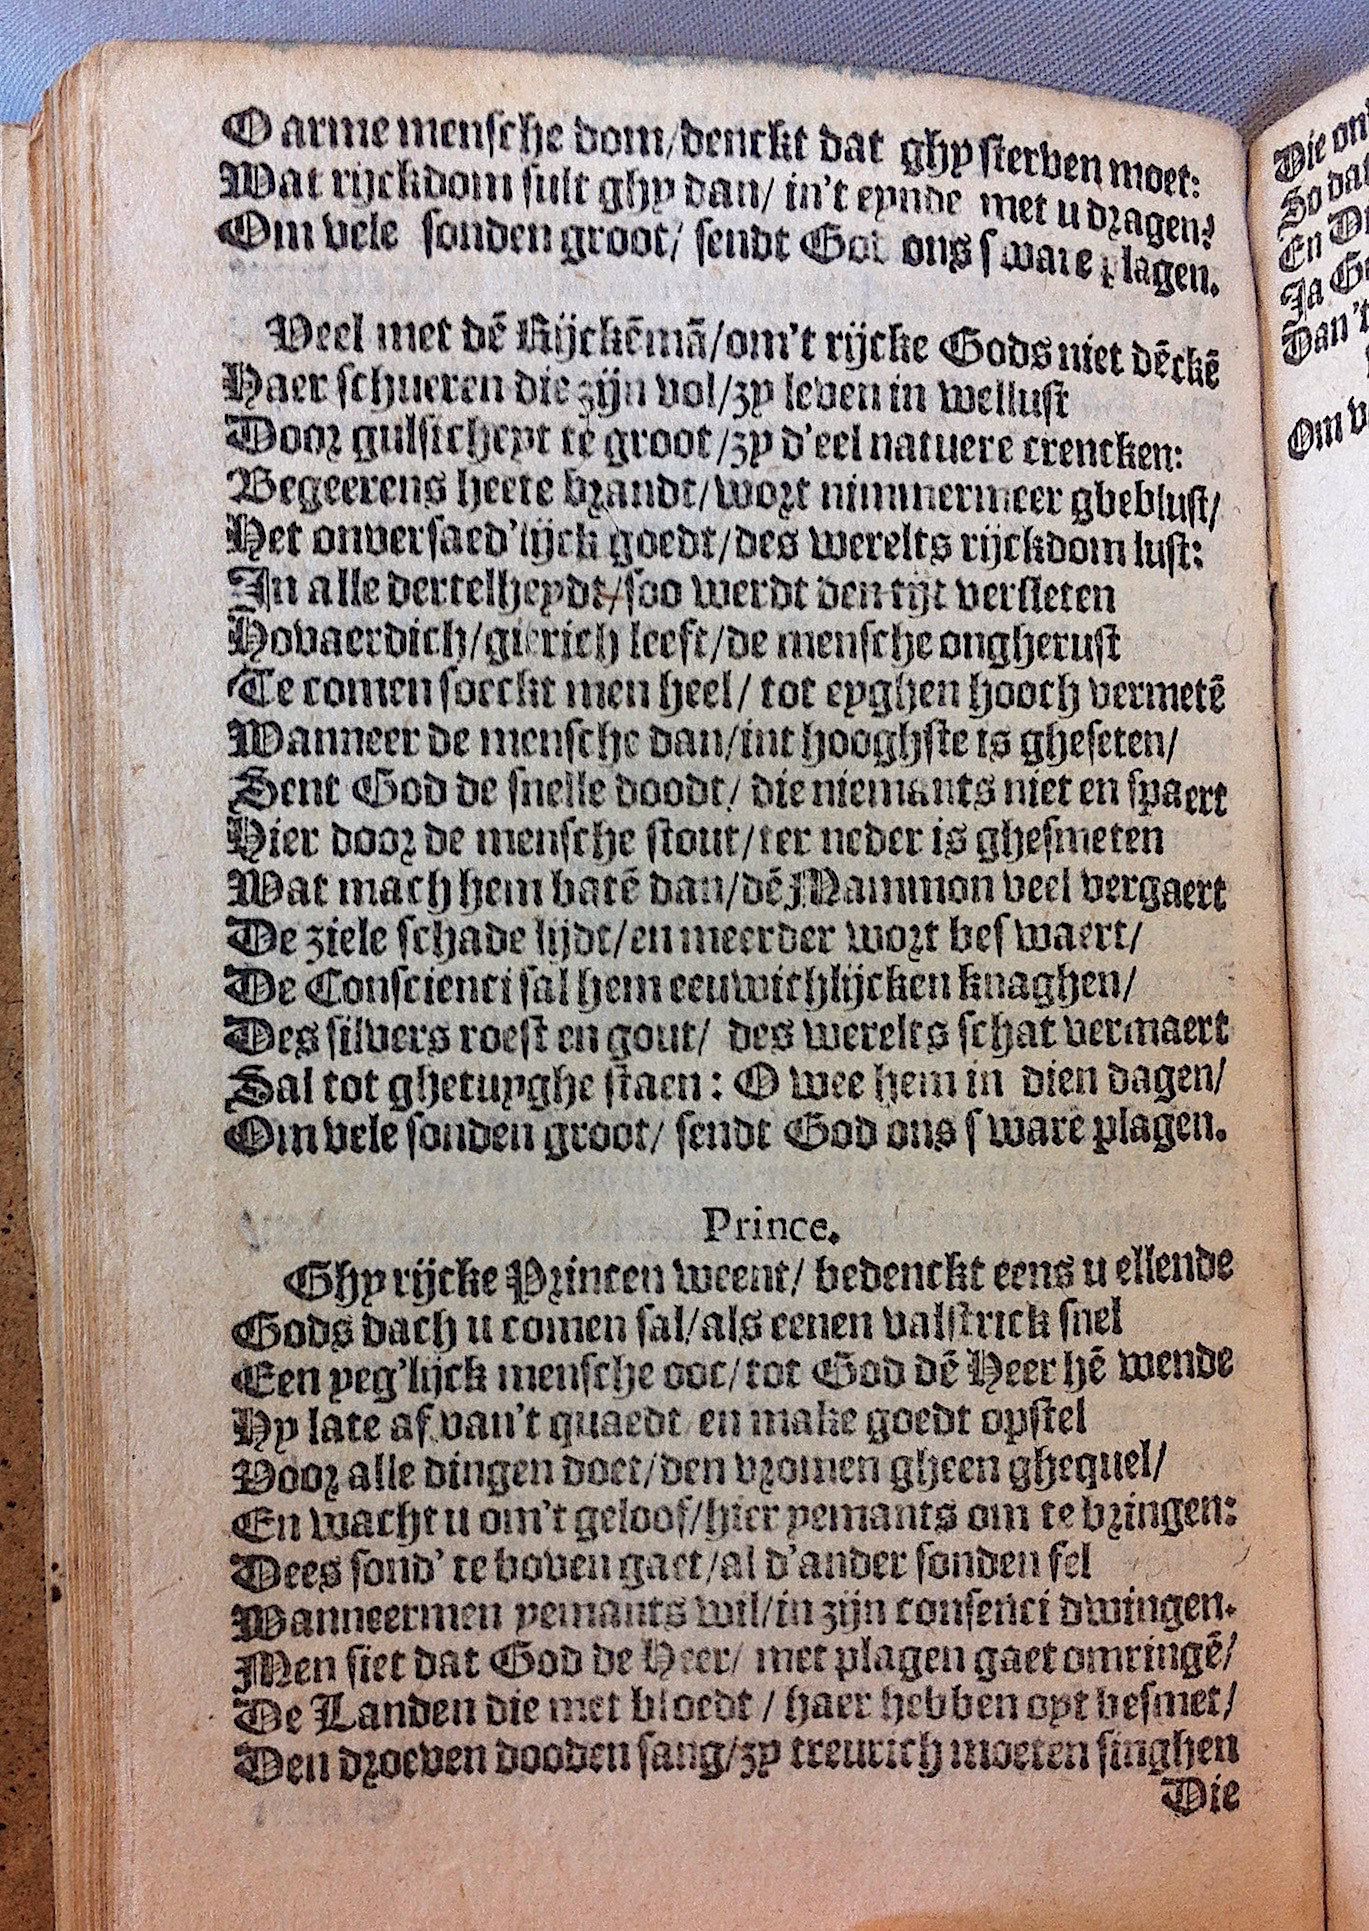 O arme mensche dom/denckt dat ghy sterven moet:
Wat rijckdom sult ghy dan/ in't eynde met u dragen?
Om vele sonden groot/ sendt God ons sware plagen.
Veel met dē Rijckēmā/om't rijcke Gods niet dēckē
Haer schueren die zijn vol/zy leven in wellust
Door gulsicheyt te groot/zy d'eel natuere crencken:
Begeerens heete brandt/wort nimmermeer gheblust/
Het onversaed'lijck goedt/des werelts rijckdom lust:
In alle dertelheydt/soo werdt den tijt versleten
Hovaerdich/gierich leeft/de mensche ongherust
Te comen soeckt men heel/ tot eyghen hooch vermetē
Wanneer de mensche dan/int hooghste is gheseten/
Sent God de snelle doodt/ die niemants niet en spaert
Hier door de mensche stout/ter neder is ghesmeten
Wat mach hem batē dan/dē Mammon veel vergaert
De ziele schade lijdt/en meerder wort beswaert/
De Conscienci sal hem eeuwichlijcken knaghen/
Des silvers roest en gout/ des werelts schat vermaert
Sal tot ghetuyghe staen: O wee hem in dien dagen/
Om vele sonden groot/ sendt God ons sware plagen.
Prince.
Ghy rijcke Princen weent/ bedenckt eens u ellende
Gods dach u comen sal/als eenen valstrick snel
Een yeg'lijck mensche ooc/tot God dē Heer hē wende
Hy late af van't quaedt en make goedt opstel
Voor alle dingen doet/den vromen gheen ghequel/
En wacht u om't geloof/hier yemants om te bringen:
Dees sond' te boven gaet/al d'ander sonden fel
Wanneermen yemants wil/in zijn consenci dwingen.
Men siet dat God de Heer/ met plagen gaet omringē/
De Landen die met bloedt / haer hebben oyt besmet/
Den droeven dooden sang/zy treurich moeten singhen
Die
Die
So
En
Ja
Dan
Om